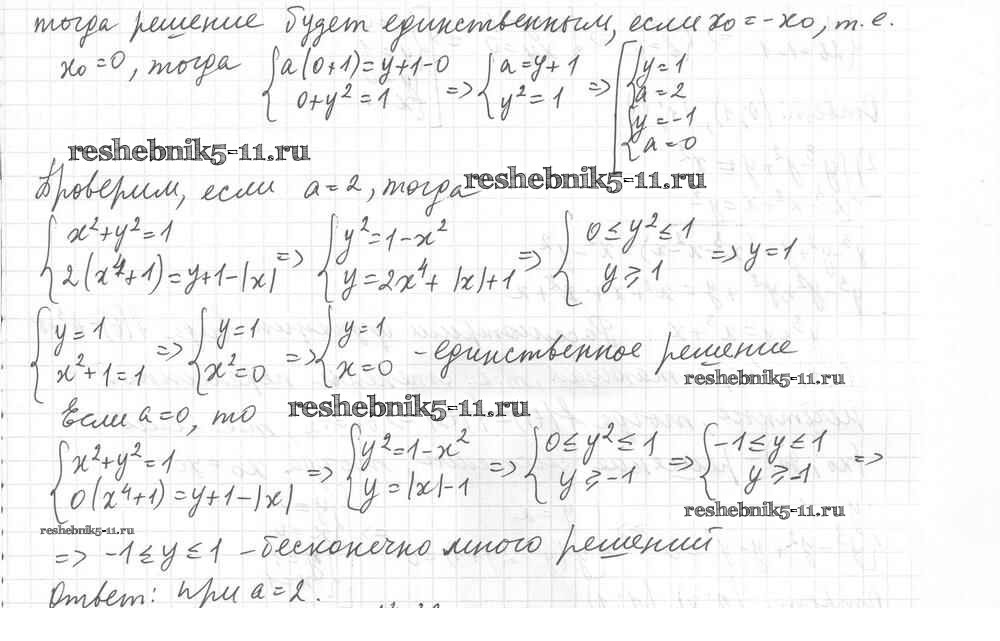 тогда решение будет единственным, если x₀=-x₀, т.е.
x₀=0, тогда { a(0+1)=y+1-0 ; 0+y²=1 => { a=y+1 ; y²=1 => [ { y=1 ; a=2 ; { y=-1 ; a=0
reshebnik5-11.ru
Проверим, если a=2, тогда
reshebnik5-11.ru
{ x²+y²=1 ; 2(x⁴+1)=y+1-|x| => { y²=1-x² ; y=2x⁴+|x|+1 => { 0≤y²≤1 ; y≥1 => y=1
{ y=1 ; x²+1=1 => { y=1 ; x²=0 => { y=1 ; x=0 - единственное решение
reshebnik5-11.ru
Если a=0, то
reshebnik5-11.ru
{ x²+y²=1 ; 0(x⁴+1)=y+1-|x| => { y²=1-x² ; y=|x|-1 => { 0≤y²≤1 ; y≥-1 => { -1≤y≤1 ; y≥-1 =>
reshebnik5-11.ru
reshebnik5-11.ru
=> -1≤y≤1 - бесконечно много решений
Ответ: при a=2.